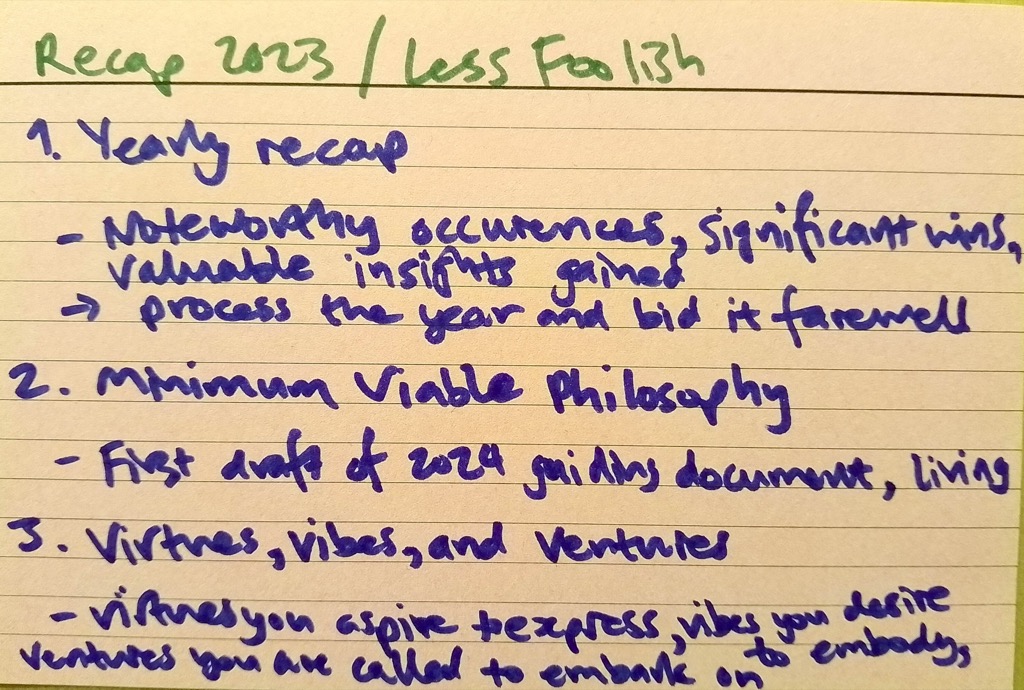 Recap 2023 / Less Foolish
1. Yearly recap
- Noteworthy occurences, significant wins,
valuable insights gained
→ process the year and bid it farewell
2. Minimum Viable Philosophy
- First draft of 2024 guiding document, living
3. Virtues, vibes, and ventures
- virtues you aspire to express, vibes you desire
to embody,
ventures you are called to embark on